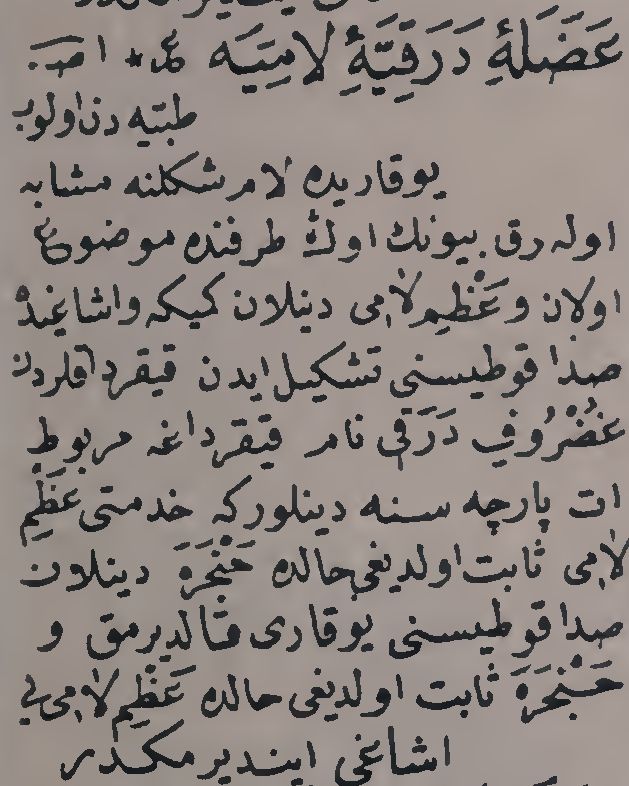 عَضَلَهٔ دَرَقِيَّهٔ لامِيَه عم ا صـ
طبیّه دن اولوب
یوقاریده لام شکلنه مشابه
اوله رق بیونك اوڭ طرفنده موضوع
اولان و عَظْمِ لامی دینلان کمیکه و اشاغیده
صدا قوطیسنی تشکیل ایدن قیقرداقلردن
غُضْرُوفِ دَرَقی نام قیقرداغه مربوط
ات پارچه سنه دینلورکه خدمتی عَظْمِ
لامی ثابت اولدیغی حالده حَنْجَرَه دینلان
صدا قوطیسنی یوقاری قالدیرمق و
حَنْجَرَه ثابت اولدیغی حالده عَظْمِ لامی یی
اشاغی ایندیرمکدر